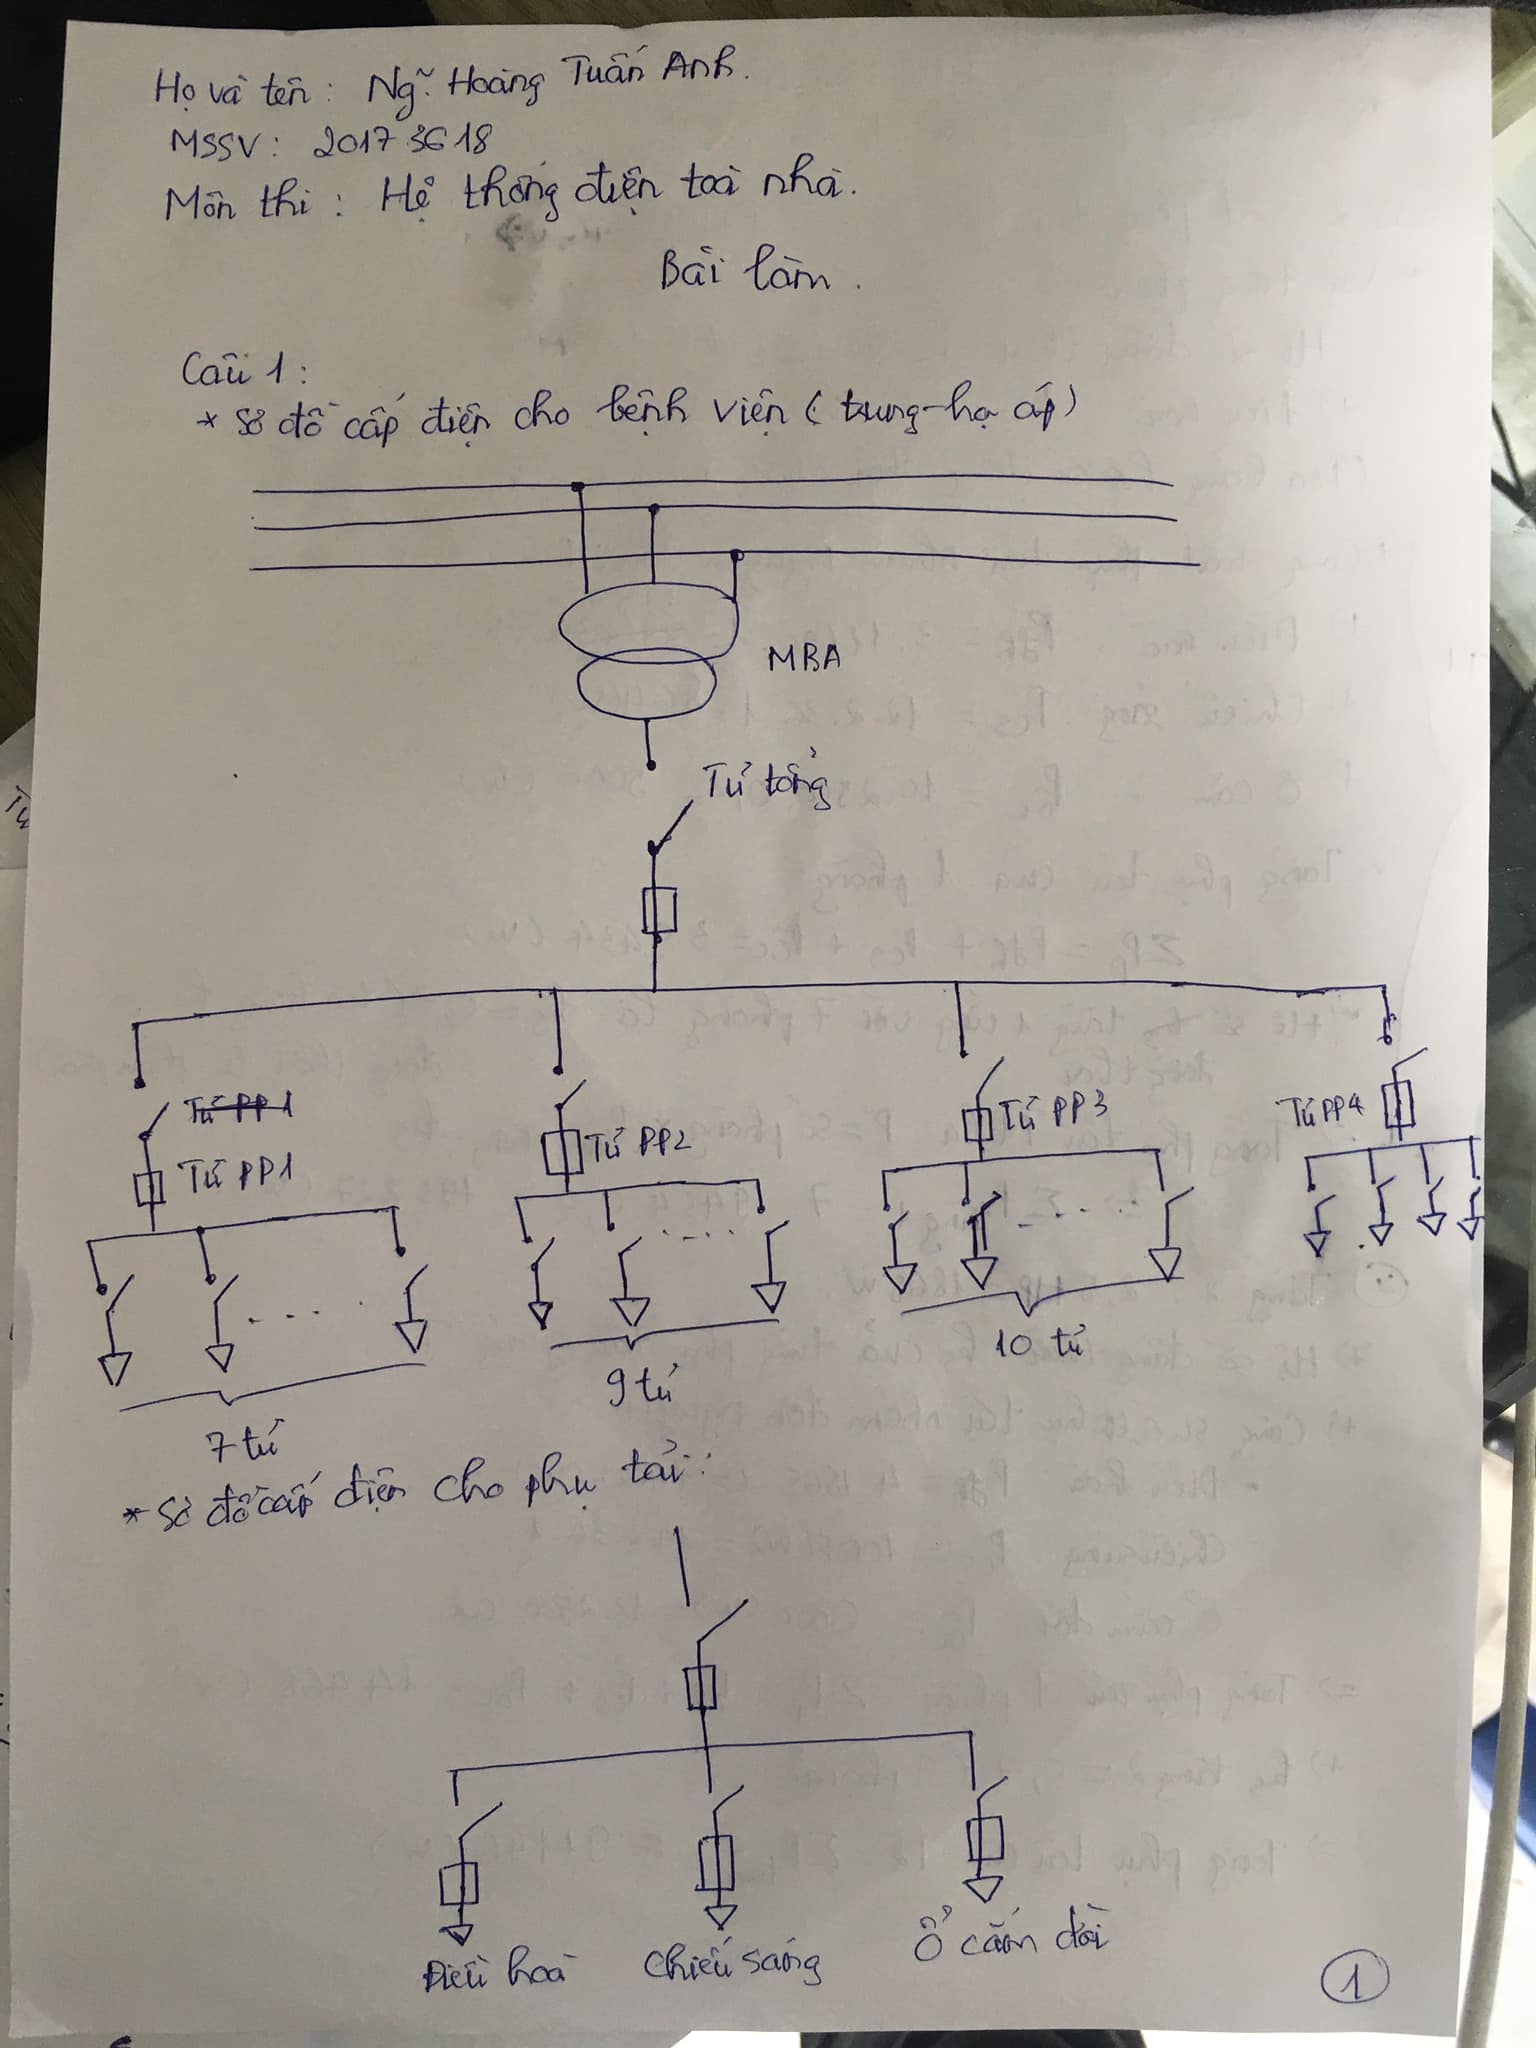 Họ và tên : Ng̃. Hoàng Tuấn Anh.
MSSV : 20173618
Môn thi : Hệ thống điện toà nhà.
Bài làm .
Câu 1 :
* Sơ đồ cấp điện cho bệnh viện ( trung-hạ áp)
MBA
Tủ tổng
Tủ PP1
Tủ PP1
Tủ PP2
Tủ PP3
Tủ PP4
7 tủ
9 tủ
10 tủ
* Sơ đồ cấp điện cho phụ tải :
Điều hoà
Chiếu sáng
Ổ cắm đôi
1